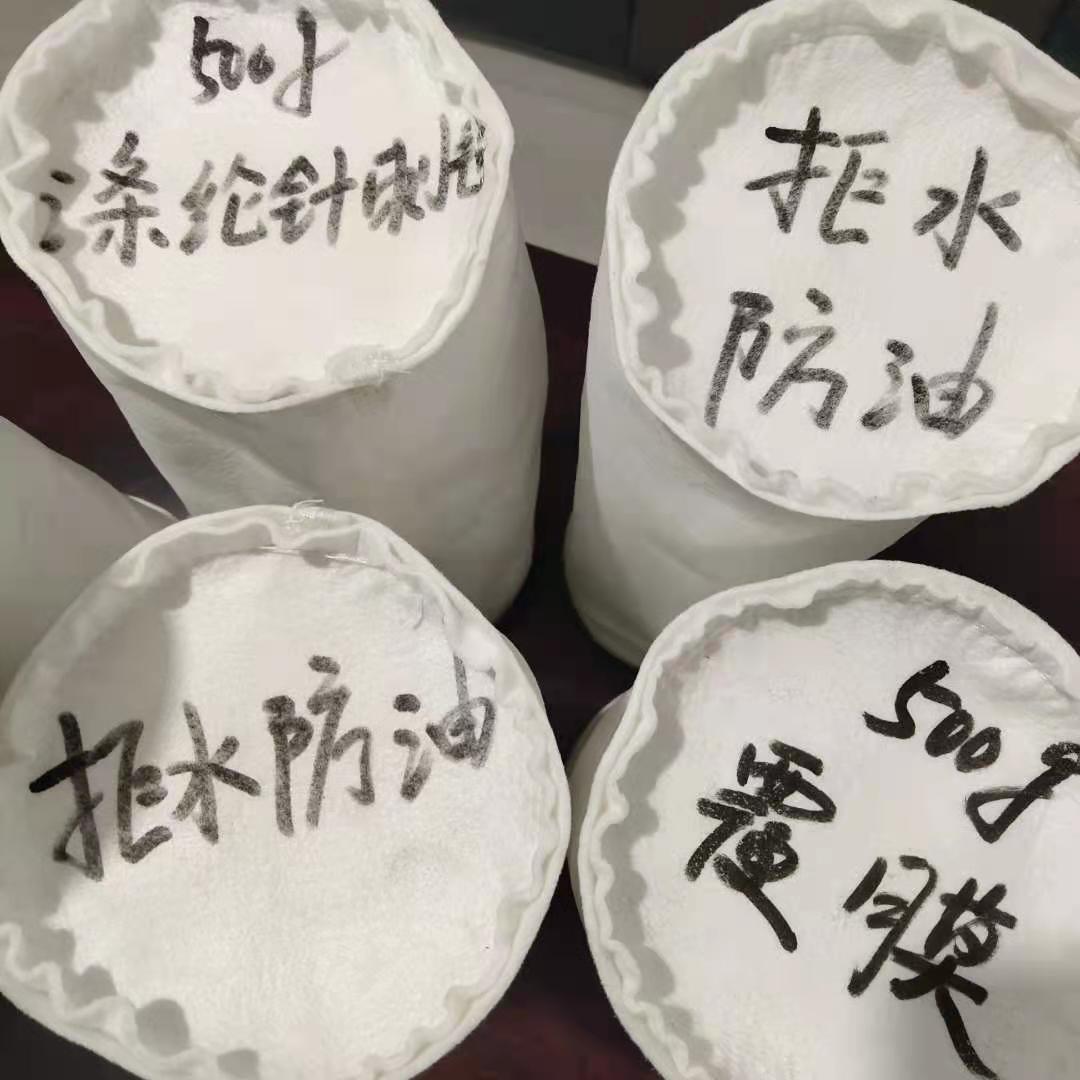 500g
涤纶针刺毡
拒水
防油
拒水防油
500g
覆膜